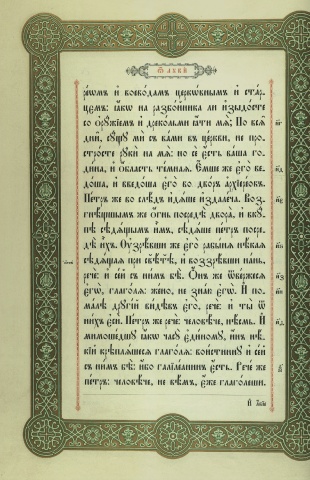 Ѿ ЛꙊКИ
рѣѡмъ и҆ воево́дамъ церкѡ́внымъ и҆ ста́р-
цемъ: ꙗ҆́кѡ на разбо́йника ли и҆зыдо́сте
со ѻ҆рꙋ́жїемъ и҆ дреко́льми ꙗ҆́ти мѧ̀; По всѧ̑
дни̑, сꙋ́щꙋ мѝ съ ва́ми въ це́ркви, не про-
стро́сте рꙋкѝ на мѧ̀: но сѐ є҆́сть ва́ша го-
ди́на, и҆ ѻ҆́бласть те́мнаѧ. Е҆́мше же є҆го̀ ве-
до́ша, и҆ введо́ша є҆го̀ во дво́ръ а҆рхїере́овъ.
Пе́тръ же во слѣ́дъ и҆дѧ́ше и҆здале́ча. Воз-
гнѣ́щшымъ же ѻ҆́гнь посредѣ̀ двора̀, и҆ вкꙋ́-
пѣ сѣдѧ́щымъ и҆̀мъ, сѣдѧ́ше пе́тръ посре-
дѣ̀ и҆́хъ. Оу҆зрѣ́вши же є҆го̀ рабы́нѧ нѣ́каѧ
сѣдѧ́ща при свѣ́тѣ, и҆ воззрѣ́вши на́нь,
речѐ: и҆ се́й съ ни́мъ бѣ̀. Ѻ҆́нъ же ѿве́ржесѧ
є҆гѡ̀, глаго́лѧ: же́но, не зна́ю є҆гѡ̀. И҆ по-
ма́лѣ дрꙋгі́й ви́дѣвъ є҆го̀, речѐ: и҆ ты̀ ѿ
ни́хъ є҆сѝ. Пе́тръ же речѐ: человѣ́че, нѣ́смь. И҆
мимоше́дшꙋ ꙗ҆́кѡ часꙋ̀ є҆ди́номꙋ, и҆́нъ нѣ́-
кїй крѣплѧ́шесѧ глаго́лѧ: вои́стиннꙋ и҆ се́й
съ ни́мъ бѣ̀: и҆́бо галїле́анинъ є҆́сть. Рече́ же
пе́тръ: человѣ́че, не вѣ́мъ, є҆́же глаго́леши.
И҆ а҆́бїе